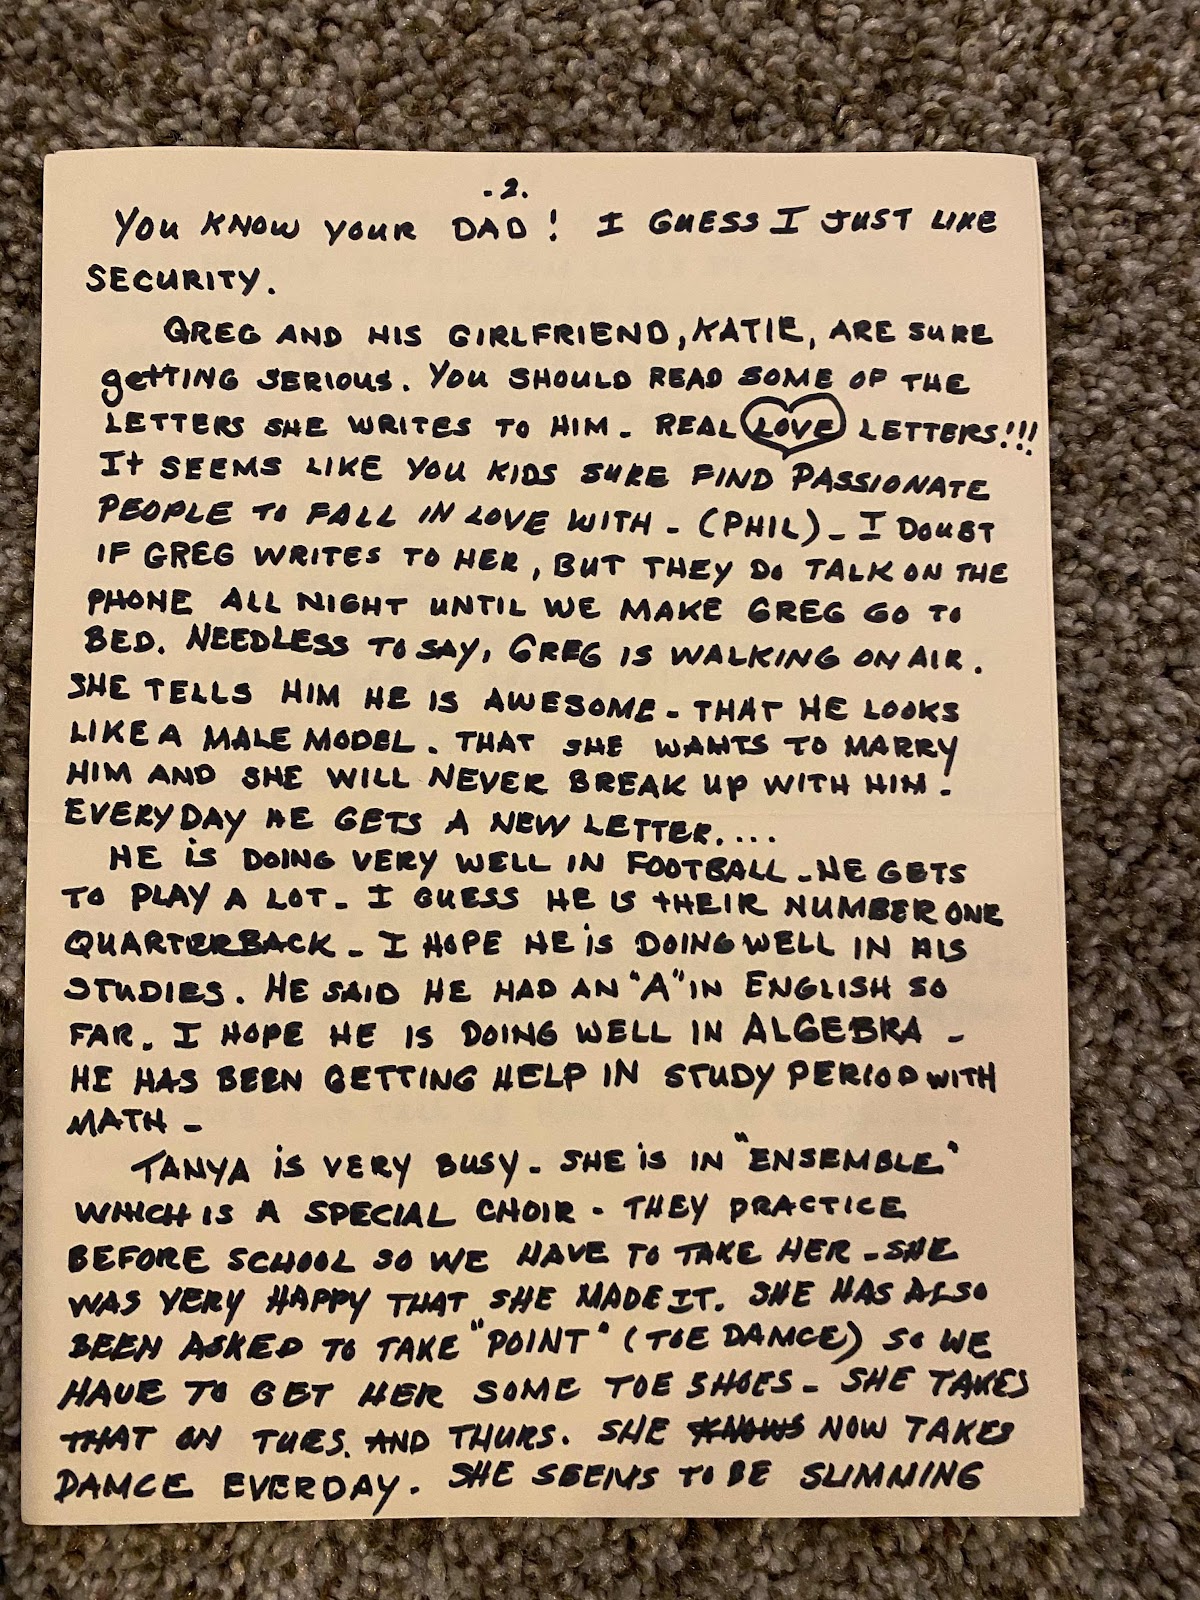 - 2.
YOU KNOW YOUR DAD! I GUESS I JUST LIKE
SECURITY.
GREG AND HIS GIRLFRIEND, KATIE, ARE SURE
getTING SERIOUS. YOU SHOULD READ SOME OF THE
LETTERS SHE WRITES TO HIM - REAL LOVE LETTERS!!!
It SEEMS LIKE YOU KIDS SURE FIND PASSIONATE
PEOPLE TO FALL IN LOVE WITH - (PHIL) - I DOUBT
IF GREG WRITES TO HER, BUT THEY DO TALK ON THE
PHONE ALL NIGHT UNTIL WE MAKE GREG GO TO
BED. NEEDLESS TO SAY, GREG IS WALKING ON AIR.
SHE TELLS HIM HE IS AWESOME - THAT HE LOOKS
LIKE A MALE MODEL. THAT SHE WANTS TO MARRY
HIM AND SHE WILL NEVER BREAK UP WITH HIM.
EVERYDAY HE GETS A NEW LETTER....
HE IS DOING VERY WELL IN FOOTBALL - HE GETS
TO PLAY A LOT - I GUESS HE IS tHEIR NUMBER ONE
QUARTERBACK - I HOPE HE IS DOING WELL IN HIS
STUDIES. HE SAID HE HAD AN "A" IN ENGLISH SO
FAR. I HOPE HE IS DOING WELL IN ALGEBRA -
HE HAS BEEN GETTING HELP IN STUDY PERIOD WITH
MATH -
TANYA IS VERY BUSY - SHE IS IN "ENSEMBLE"
WHICH IS A SPECIAL CHOIR - THEY PRACTICE
BEFORE SCHOOL SO WE HAVE TO TAKE HER - SHE
WAS VERY HAPPY THAT SHE MADE IT. SHE HAS ALSO
BEEN ASKED TO TAKE "POINT" (TOE DAMCE) SO WE
HAVE TO GET HER SOME TOE SHOES - SHE TAKES
THAT ON TUES. AND THURS. SHE KNOWS NOW TAKES
DAMCE EVERDAY. SHE SEEMS TO BE SLIMMING